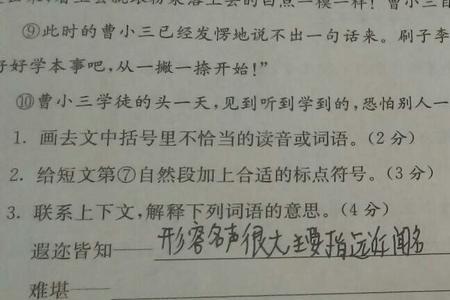 ⑨此时的曹小三已经发愣地说不出一句话来。刷子李
好好学本事吧,从一撇一捺开始!”
⑩曹小三学徒的头一天,见到听到学到的,恐怕别人一
1. 画去文中括号里不恰当的读音或词语。(2 分)
2. 给短文第⑦自然段加上合适的标点符号。(3 分)
3. 联系上下文,解释下列词语的意思。(4 分)
遐迩皆知——形容名声很大主要指远近闻名
难堪——